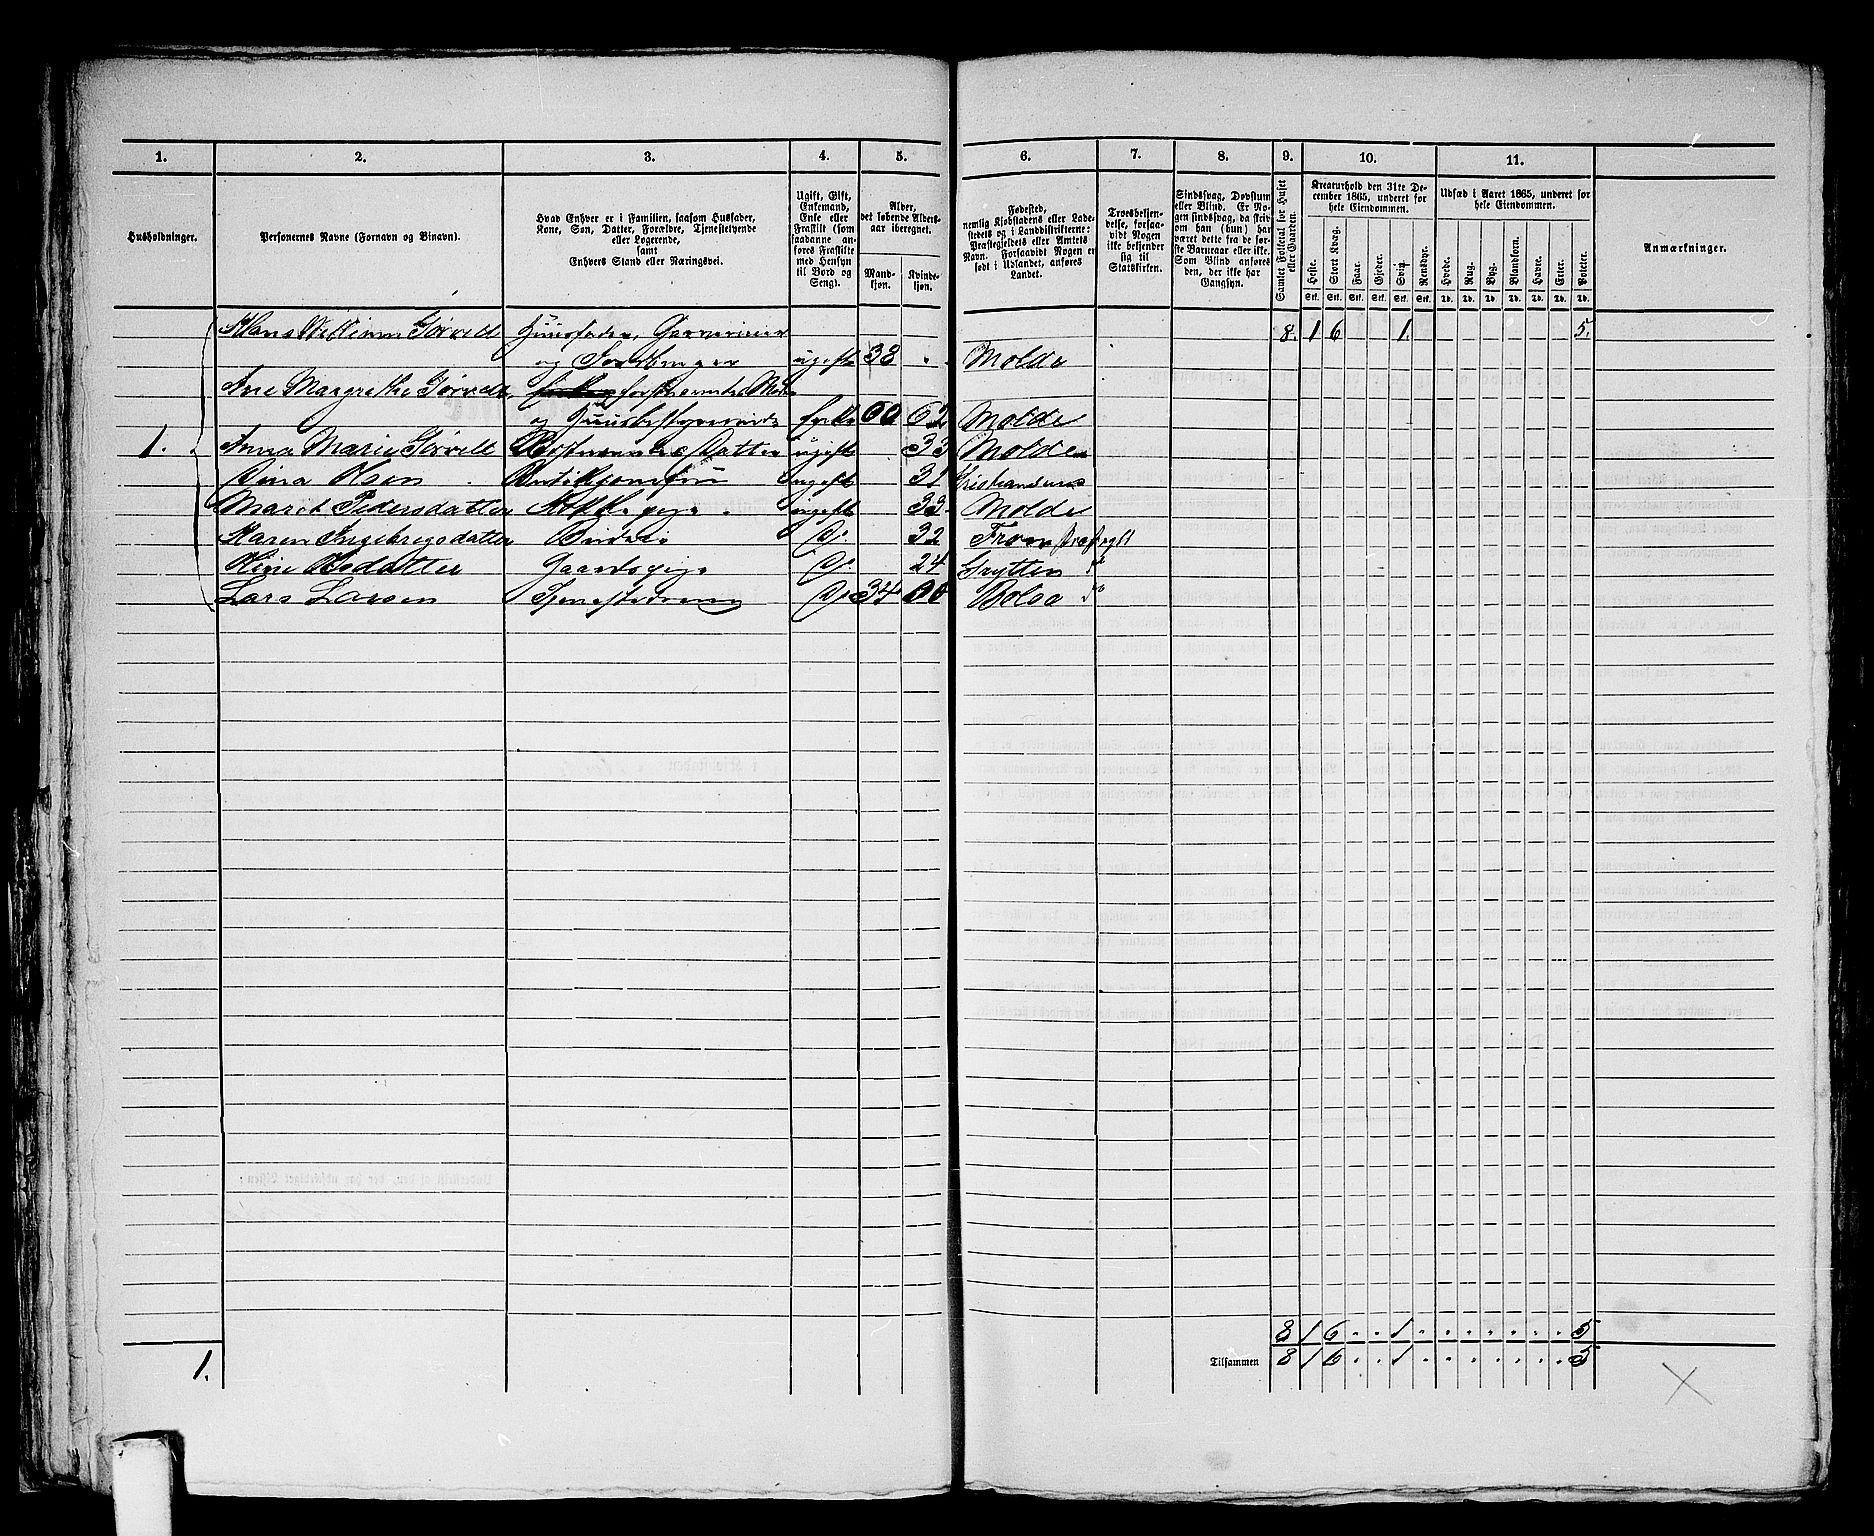 1. 2. 3. 4. 5. 6. 7. 8. 9. 10. 11.
Husholdninger.
Personernes Navne (Fornavn og Binavn).
Hvad Enhver er i Familien, saasom Husfader,
Kone, Søn, Datter, Forældre, Tjenestetyende
eller Logerende,
samt
Enhvers Stand eller Næringsvei.
Ugift, Gift,
Enkemand,
Enke eller
Fraskilt (som
saadanne an-
føres Fraskilte
med Hensyn
til Bord og
Seng).
Alder,
det løbende Alders-
aar iberegnet.
Mand-
kjøn.
Kvinde-
kjøn.
Fødested,
nemlig Kjøbstadens eller Lade-
stedets og i Landdistrikterne:
Præstegjeldets eller Amtets
Navn. Forsaavidt Nogen er
født i Udlandet, anføres
Landet.
Troesbekjen-
delse, forsaa-
vidt Nogen
ikke bekjender
sig til
Statskirken.
Sindssvag, Døvstum
eller Blind. Er No-
gen sindssvag, da skriv
om han (hun) har
været dette fra de før-
ste Barneaar eller ikke.
Som Blind anføres
den, der ikke har
Gangsyn.
Samlet Folketal for Huset
eller Gaarden.
Kreaturhold den 31te De-
cember 1865, underet for
hele Eiendommen.
Heste. Stort Kvæg. Faar. Gjeder. Svin. Rensdyr.
Stk. Stk. Stk. Stk. Stk. Stk.
Udsæd i Aaret 1865, underet for
hele Eiendommen.
Hvede. Rug. Byg. Blandkorn. Havre. Erter. Poteter.
Td. Td. Td. Td. Td. Td. Td.
Anmærkninger.
Hans William Gørvell Huusfader, 8. 1 6 1. 5.
og ugift 38 Molde
Ane Margrethe Gørvell
og Huusbestyrerinde Enke 60 62 Molde
1. Anna Marie Gørvell Datter ugift 33 Molde
Dina Olsen ugift 31
Marit Pedersdatter Kokkepige ugift 33 Molde
Karen Ingebrigtsdatter Do. 32
Do. 24 Grytten
Lars Larsen Do 34 00 Bolsø
8 1 6 . . 1 . . . . . . . 5
1. Tilsammen 8 1 6 . . 1 . . . . . . . 5